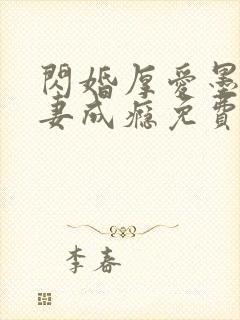 閃婚厚愛墨
妻成癮免費
李春